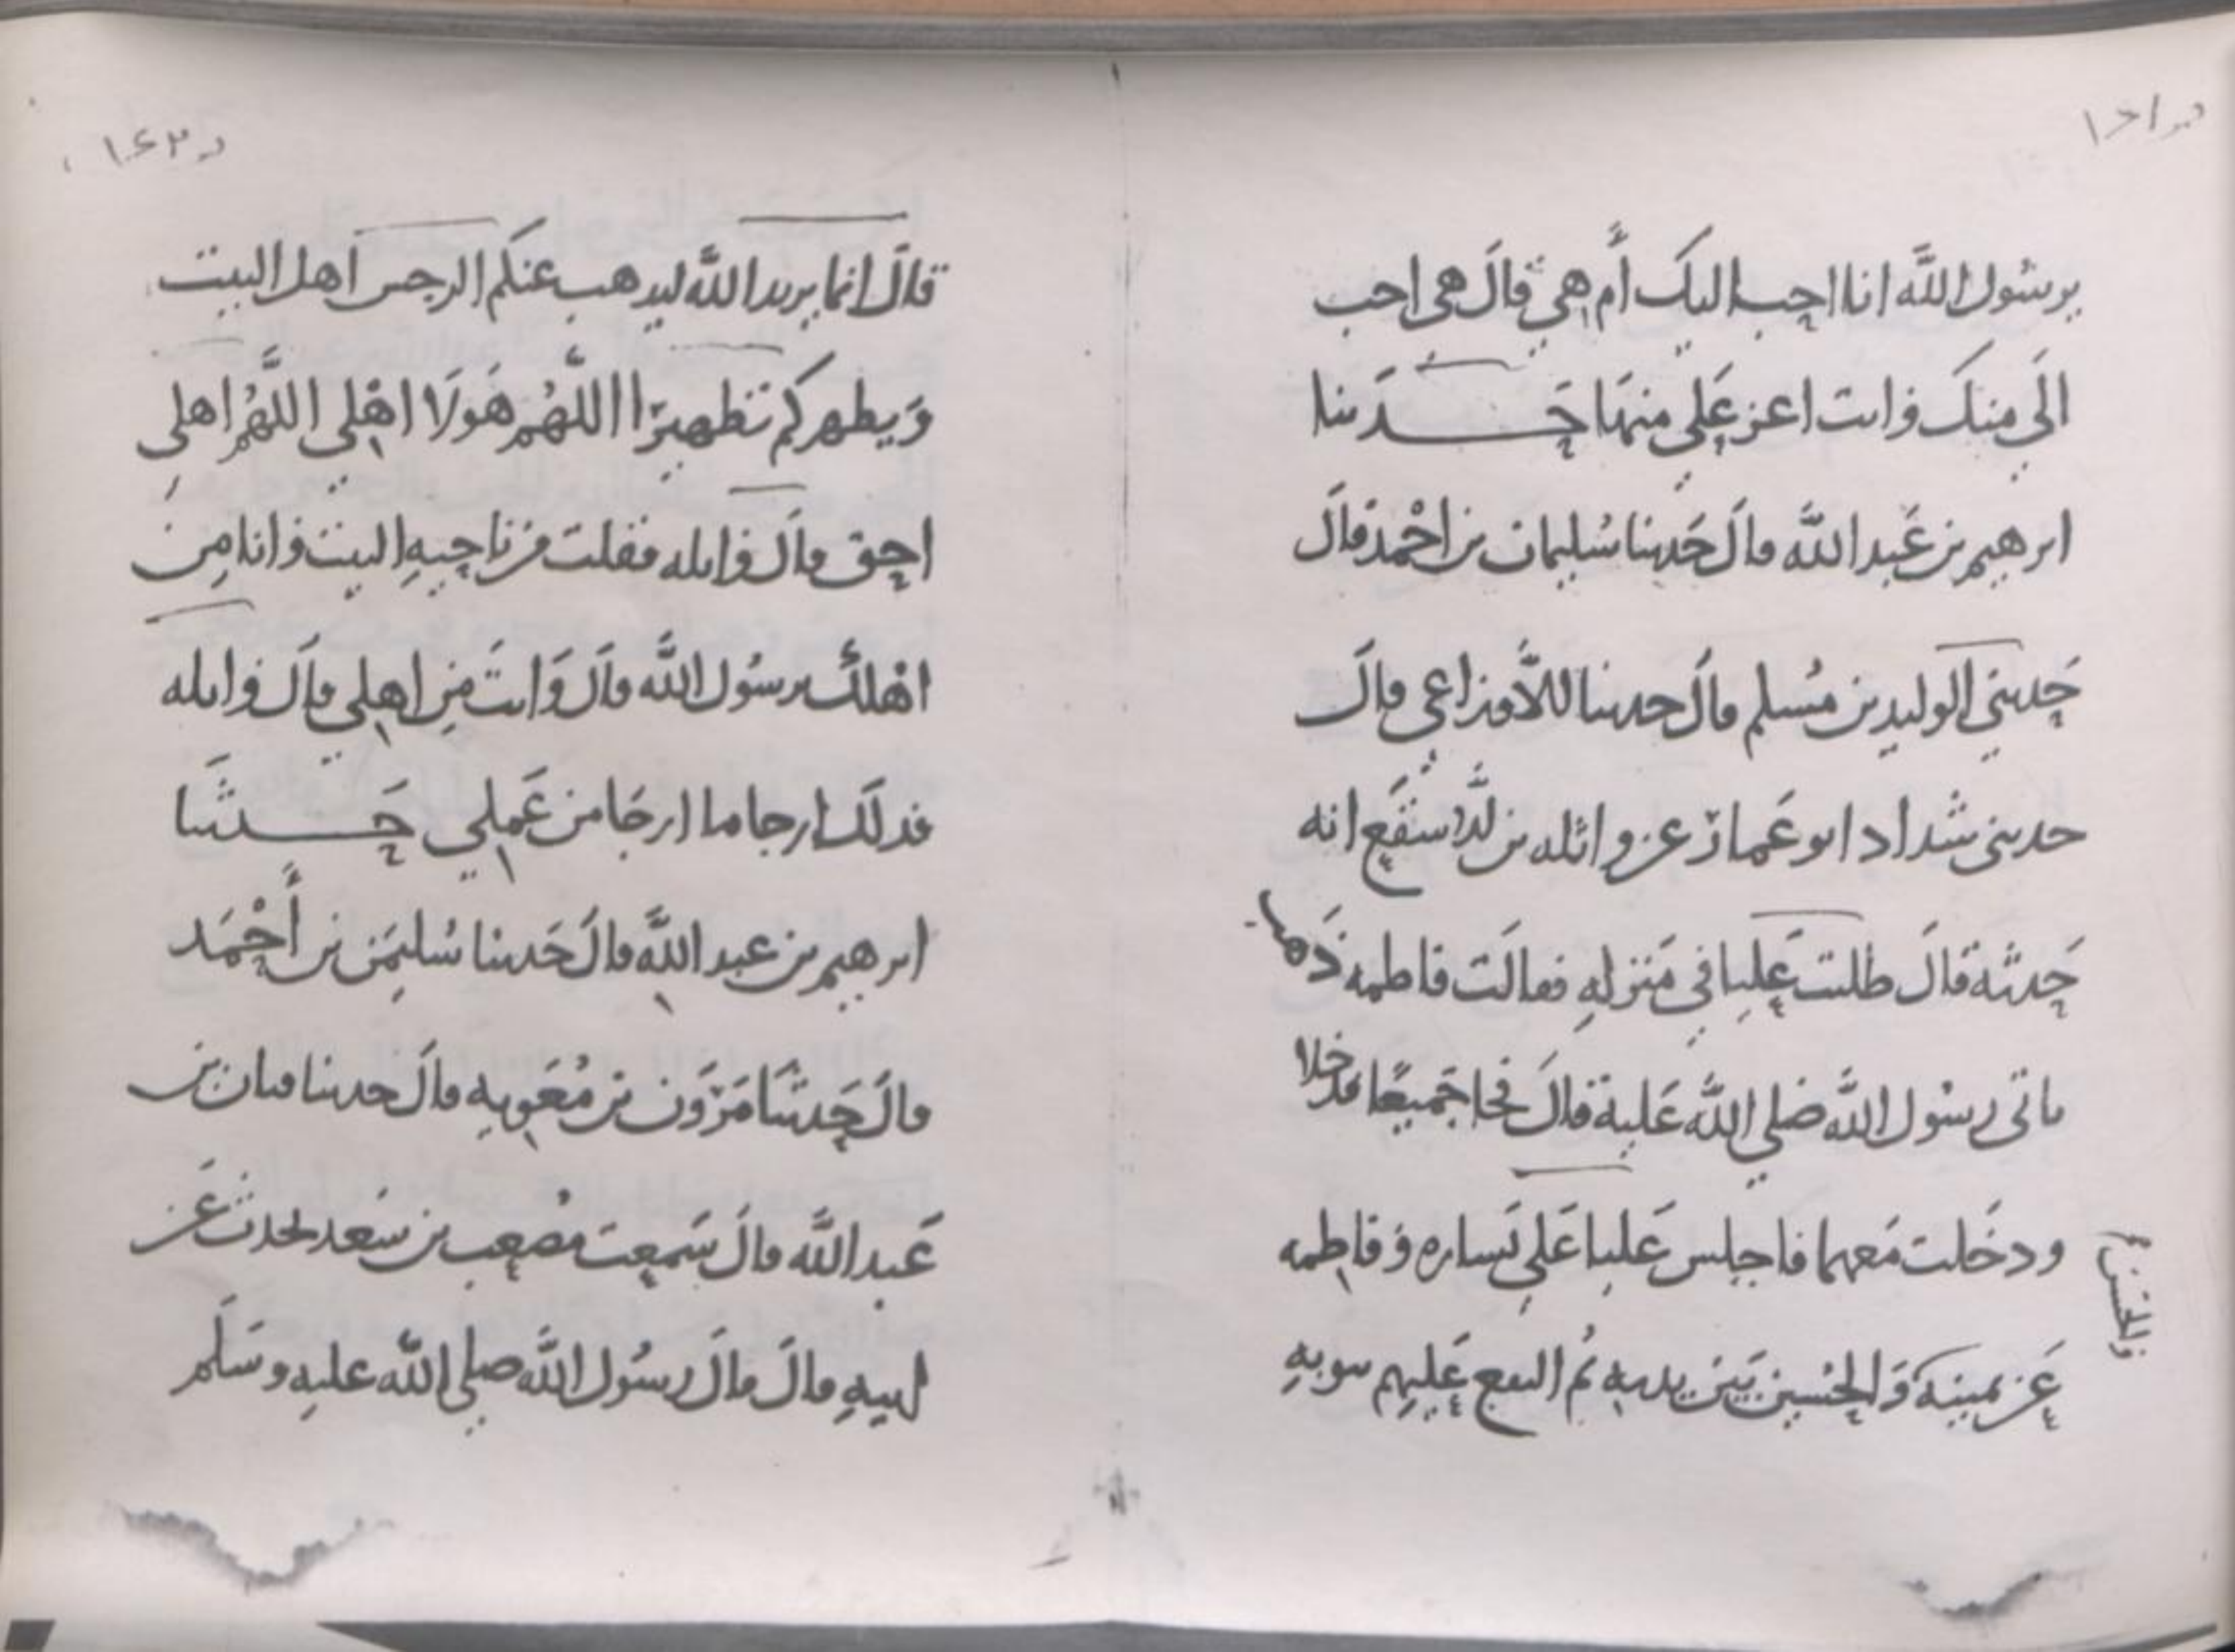 د ١٤١
يرسول الله انا احب اليك أم هي قال هي احب
الي منك وانت اعز علي منها حدثنا
ابرهيم بن عبد الله قال حدثنا سليمان بن احمد قال
حدثني الوليد بن مسلم قال حدثنا الاوزاعي قال
حدثني شداد ابو عمار عن واثله بن الاسقع انه
حدثه قال طلبت عليا في منزله فقالت فاطمه ذهب
ياتي رسول الله صلي الله عليه قال فجا جميعا فدخلا
ودخلت معهما فاجلس عليا علي يساره وفاطمه
عن يمينه والحسين بين يديه ثم التفع عليهم بثوبه
والحسن
د ١٤٢
قال انما يريد الله ليذهب عنكم الرجس اهل البيت
ويطهركم تطهيرا اللهم هولا اهلي اللهم اهلي
احق قال واثله فقلت من ناحيه البيت وانا من
اهلك يرسول الله قال وانت من اهلي قال واثله
فذلك ارجا ما ارجا من عملي حدثنا
ابرهيم بن عبد الله قال حدثنا سليمن بن أحمد
قال حدثنا مرون بن معويه قال حدثنا قنان بن
عبد الله قال سمعت مصعب بن سعد يحدث عن
ابيه قال قال رسول الله صلي الله عليه وسلم